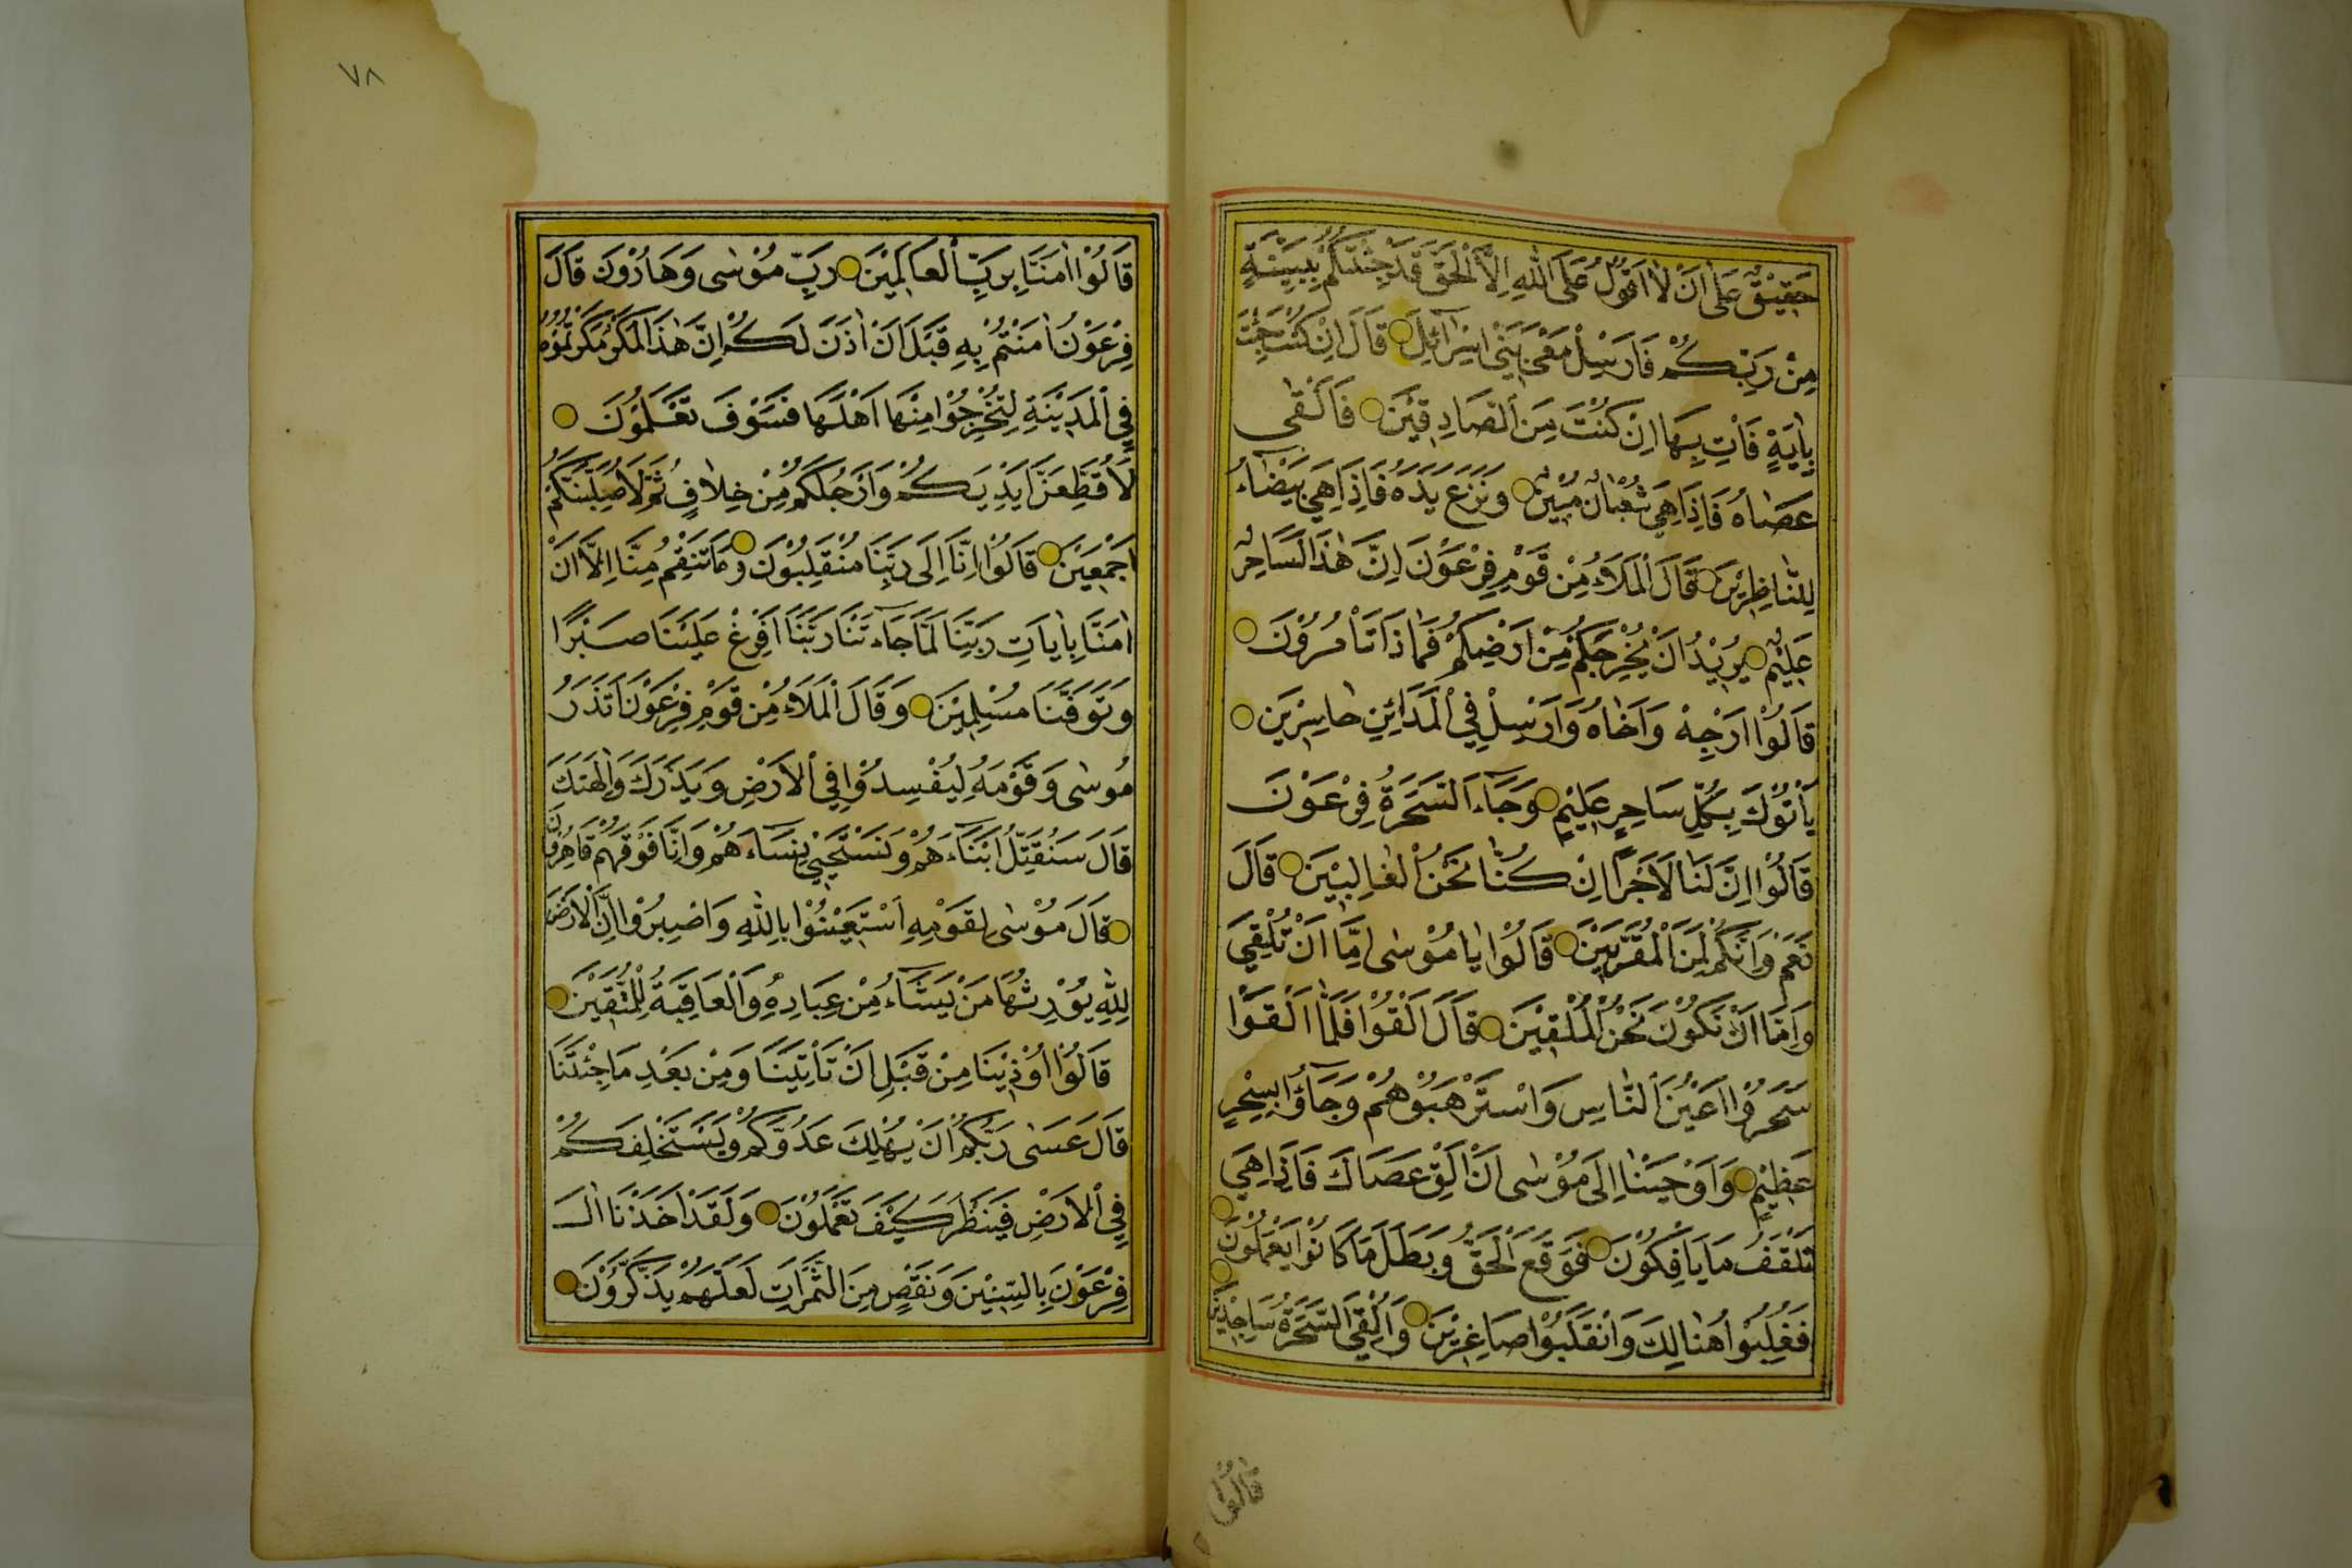 حَقِيْقٌ عَلٰى اَنْ لَا اَقُوْلَ عَلَى اللهِ اِلَّا الْحَقَّ قَدْ جِئْتُكُمْ بِبَيِّنَةٍ
مِنْ رَبِّكُمْ فَاَرْسِلْ مَعِيَ بَنِيْ اِسْرَآئِلَ قَالَ اِنْ كُنْتَ جِئْتَ
بِاٰيَةٍ فَاْتِ بِهَا اِنْ كُنْتَ مِنَ الصَّادِقِيْنَ فَاَلْقٰى
عَصَاهُ فَاِذَا هِيَ ثُعْبَانٌ مُبِيْنٌ وَنَزَعَ يَدَهُ فَاِذَا هِيَ بَيْضَاءُ
لِلنَّاظِرِيْنَ قَالَ الْمَلَاءُ مِنْ قَوْمِ فِرْعَوْنَ اِنَّ هٰذَا لَسَاحِرٌ
عَلِيْمٌ يُرِيْدُ اَنْ يُخْرِجَكُمْ مِنْ اَرْضِكُمْ فَمَاذَا تَاْمُرُوْنَ
قَالُوْا اَرْجِهْ وَاَخَاهُ وَاَرْسِلْ فِي الْمَدَائِنِ حَاشِرِيْنَ
يَاْتُوْكَ بِكُلِّ سَاحِرٍ عَلِيْمٍ وَجَاءَ السَّحَرَةُ فِرْعَوْنَ
قَالُوْا اِنَّ لَنَا لَاَجْرًا اِنْ كُنَّا نَحْنُ الْغَالِبِيْنَ قَالَ
نَعَمْ وَاِنَّكُمْ لَمِنَ الْمُقَرَّبِيْنَ قَالُوْا يَا مُوْسٰى اِمَّا اَنْ تُلْقِيَ
وَاِمَّا اَنْ نَكُوْنَ نَحْنُ الْمُلْقِيْنَ قَالَ اَلْقُوْا فَلَمَّا اَلْقَوْا
سَحَرُوْا اَعْيُنَ النَّاسِ وَاسْتَرْهَبُوْهُمْ وَجَاؤُا بِسِحْرٍ
عَظِيْمٍ وَاَوْحَيْنَا اِلٰى مُوْسٰى اَنْ اَلْقِ عَصَاكَ فَاِذَا هِيَ
تَلْقَفُ مَا يَاْفِكُوْنَ فَوَقَعَ الْحَقُّ وَبَطَلَ مَا كَانُوْا يَعْمَلُوْنَ
فَغُلِبُوْا هُنَالِكَ وَانْقَلَبُوْا صَاغِرِيْنَ وَاُلْقِيَ السَّحَرَةُ سَاجِدِيْنَ
قَالُوْا
٧٨
قَالُوْا اٰمَنَّا بِرَبِّ الْعَالَمِيْنَ رَبِّ مُوْسٰى وَهَارُوْنَ قَالَ
فِرْعَوْنُ اٰمَنْتُمْ بِهٖ قَبْلَ اَنْ اٰذَنَ لَكُمْ اِنَّ هٰذَا لَمَكْرٌ مَكَرْتُمُوْهُ
فِي الْمَدِيْنَةِ لِتُخْرِجُوْا مِنْهَا اَهْلَهَا فَسَوْفَ تَعْلَمُوْنَ
لَاُقَطِّعَنَّ اَيْدِيَكُمْ وَاَرْجُلَكُمْ مِنْ خِلَافٍ ثُمَّ لَاُصَلِّبَنَّكُمْ
اَجْمَعِيْنَ قَالُوْا اِنَّا اِلٰى رَبِّنَا مُنْقَلِبُوْنَ وَمَا تَنْقِمُ مِنَّا اِلَّا اَنْ
اٰمَنَّا بِاٰيَاتِ رَبِّنَا لَمَّا جَاءَتْنَا رَبَّنَا اَفْرِغْ عَلَيْنَا صَبْرًا
وَتَوَفَّنَا مُسْلِمِيْنَ وَقَالَ الْمَلَاءُ مِنْ قَوْمِ فِرْعَوْنَ اَتَذَرُ
مُوسٰى وَقَوْمَهُ لِيُفْسِدُوْا فِي الْاَرْضِ وَيَذَرَكَ وَاٰلِهَتَكَ
قَالَ سَنُقَتِّلُ اَبْنَاءَهُمْ وَنَسْتَحْيِيْ نِسَاءَهُمْ وَاِنَّا فَوْقَهُمْ قَاهِرُوْنَ
قَالَ مُوْسٰى لِقَوْمِهِ اسْتَعِيْنُوْا بِاللهِ وَاصْبِرُوْا اِنَّ الْاَرْضَ
لِلّٰهِ يُوْرِثُهَا مَنْ يَشَاءُ مِنْ عِبَادِهٖ وَالْعَاقِبَةُ لِلْمُتَّقِيْنَ
قَالُوْا اُوْذِيْنَا مِنْ قَبْلِ اَنْ تَاْتِيَنَا وَمِنْ بَعْدِ مَا جِئْتَنَا
قَالَ عَسٰى رَبُّكُمْ اَنْ يُهْلِكَ عَدُوَّكُمْ وَيَسْتَخْلِفَكُمْ
فِي الْاَرْضِ فَيَنْظُرَ كَيْفَ تَعْمَلُوْنَ وَلَقَدْ اَخَذْنَا اٰلَ
فِرْعَوْنَ بِالسِّنِيْنَ وَنَقْصٍ مِنَ الثَّمَرَاتِ لَعَلَّهُمْ يَذَّكَّرُوْنَ